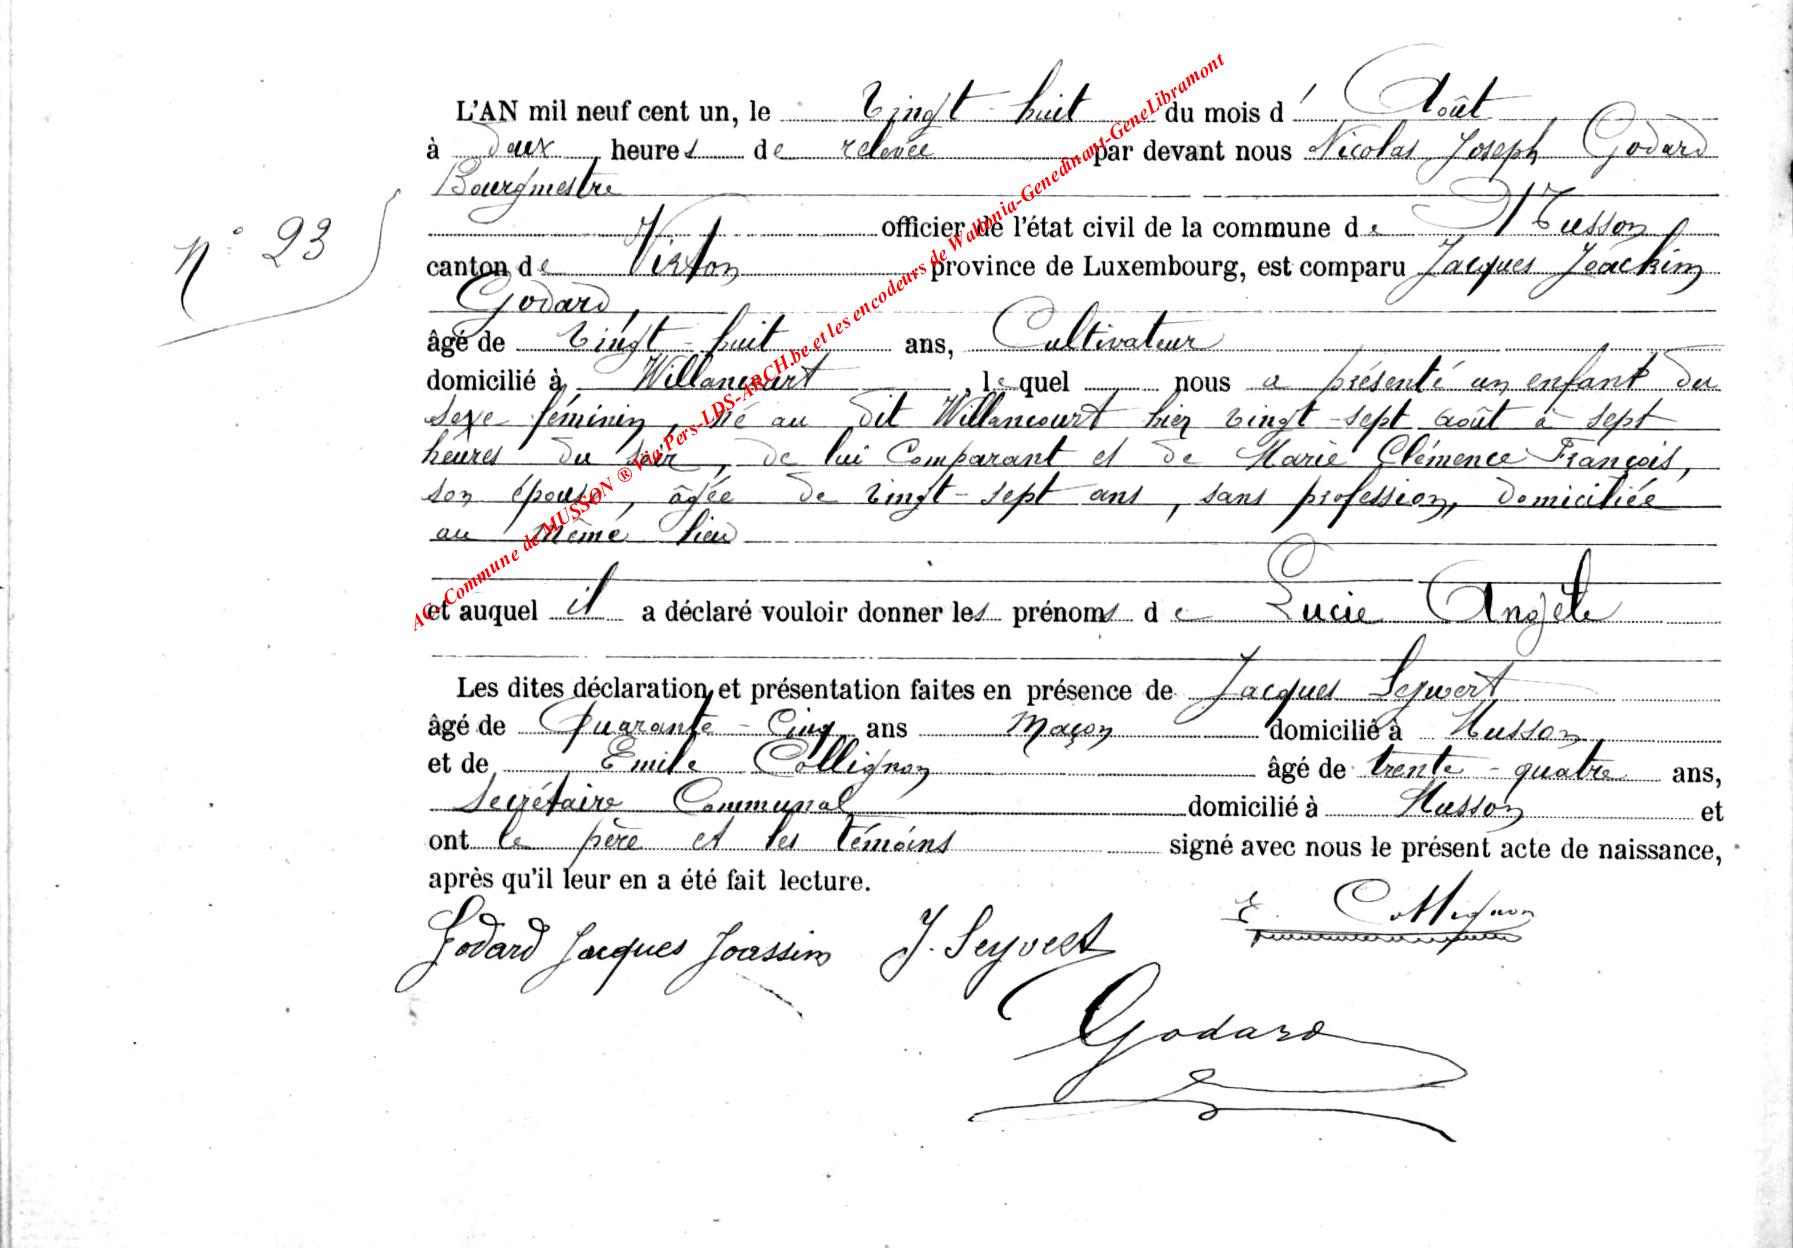 L'AN mil neuf cent un, le vingt-huit du mois d'Août
à deux heures de relevée par devant nous Nicolas Joseph Godard
Bourgmestre
officier de l'état civil de la commune de Musson
n° 23
canton de Virton province de Luxembourg, est comparu Jacques Joachim
Godard,
âgé de vingt-huit ans, Cultivateur
domicilié à Willancourt, lequel nous a présenté un enfant du
sexe féminin, né au dit Willancourt hier vingt-sept août à sept
heures du soir, de lui Comparant et de Marie Clémence François,
son épouse, âgée de vingt-sept ans, sans profession, domiciliée
au même lieu
et auquel il a déclaré vouloir donner les prénoms de Lucie Angèle
Les dites déclaration et présentation faites en présence de Jacques Seywert
âgé de Quarante-Cinq ans Maçon domicilié à Musson,
et de Emile Collignon âgé de trente-quatre ans,
Secrétaire Communal domicilié à Musson et
ont le père et les témoins signé avec nous le présent acte de naissance,
après qu'il leur en a été fait lecture.
Godard Jacques Joassim J. Seyvert E. Collignon
Godard
AG-Commune de MUSSON ® Via Pers-LDS-ARCH.be et les encodeurs de Wallonia-Genedinant-GeneLibramont